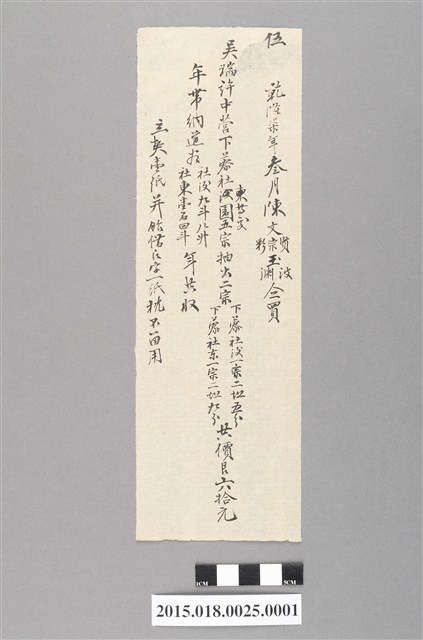 伍
乾隆柒年叁月陳文賢宗彩玉波淵仝買
吳瑞許中營下蓁社後園五宗抽出二宗下蓁社後一宗二坵五分下蓁社東一宗二坵九分共價艮六拾元
年帶納道租社後九斗八升社東壹石四斗年共收
立契壹紙并胎借字一紙執不留用
1CM
5CM
2015.018.0025.0001